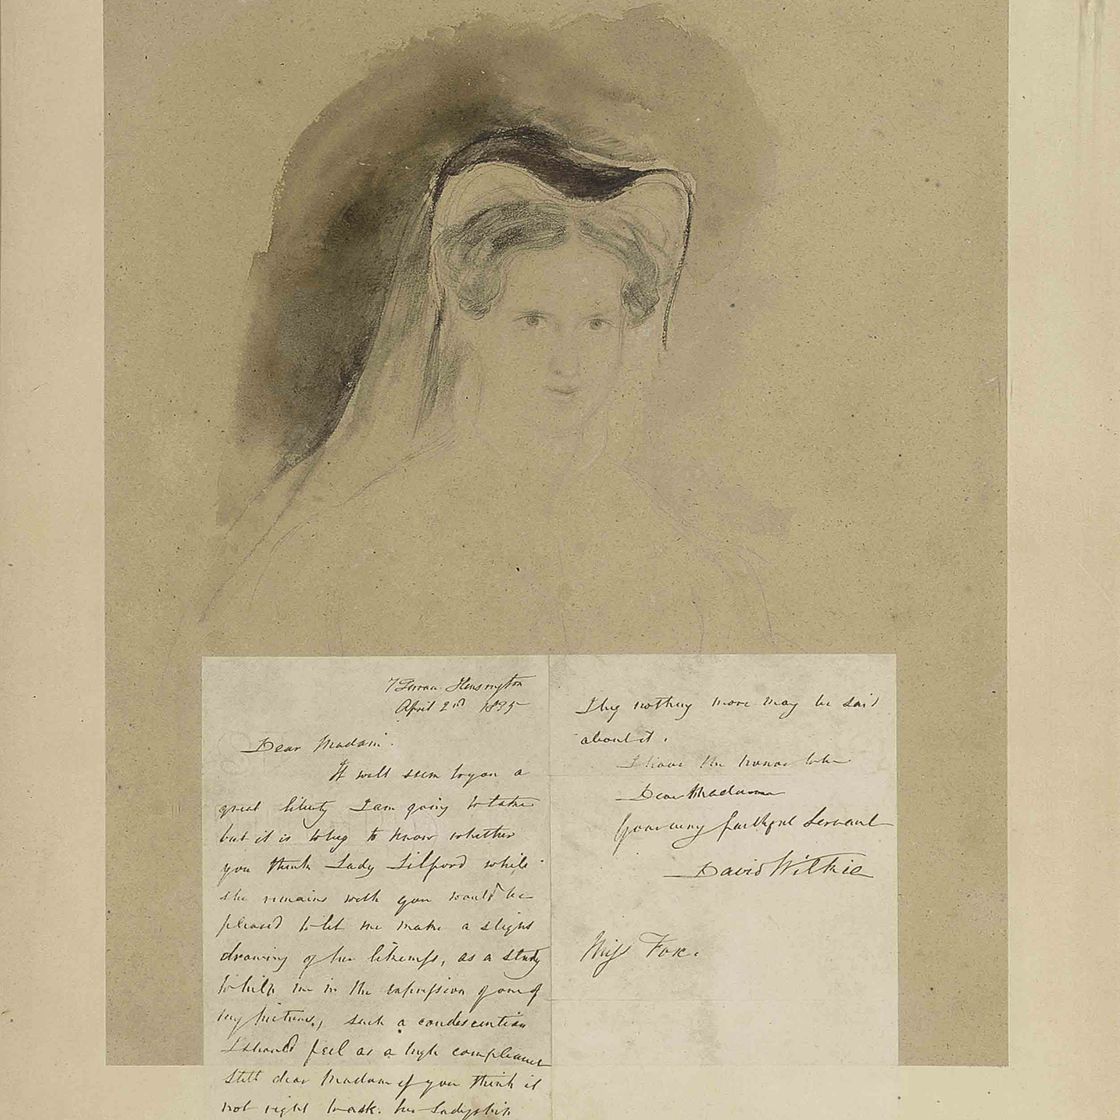 7 Terrace Kensington
April 2nd 1835
Dear Madam.
It will seem to you a
great liberty I am going to take
but it is to beg to know whether
you think Lady Lilford while
she remains with you would be
pleased to let me make a slight
drawing of her likeness, as a study
to help me in the expression of one of
my pictures, such a condescention
I should feel as a high compliment
Still dear Madam if you think it
not right to ask her Ladyship
I beg nothing more may be said
about it.
I have the honor to be
Dear Madam
Your very faithful Servant
David Wilkie
Miss Fox.